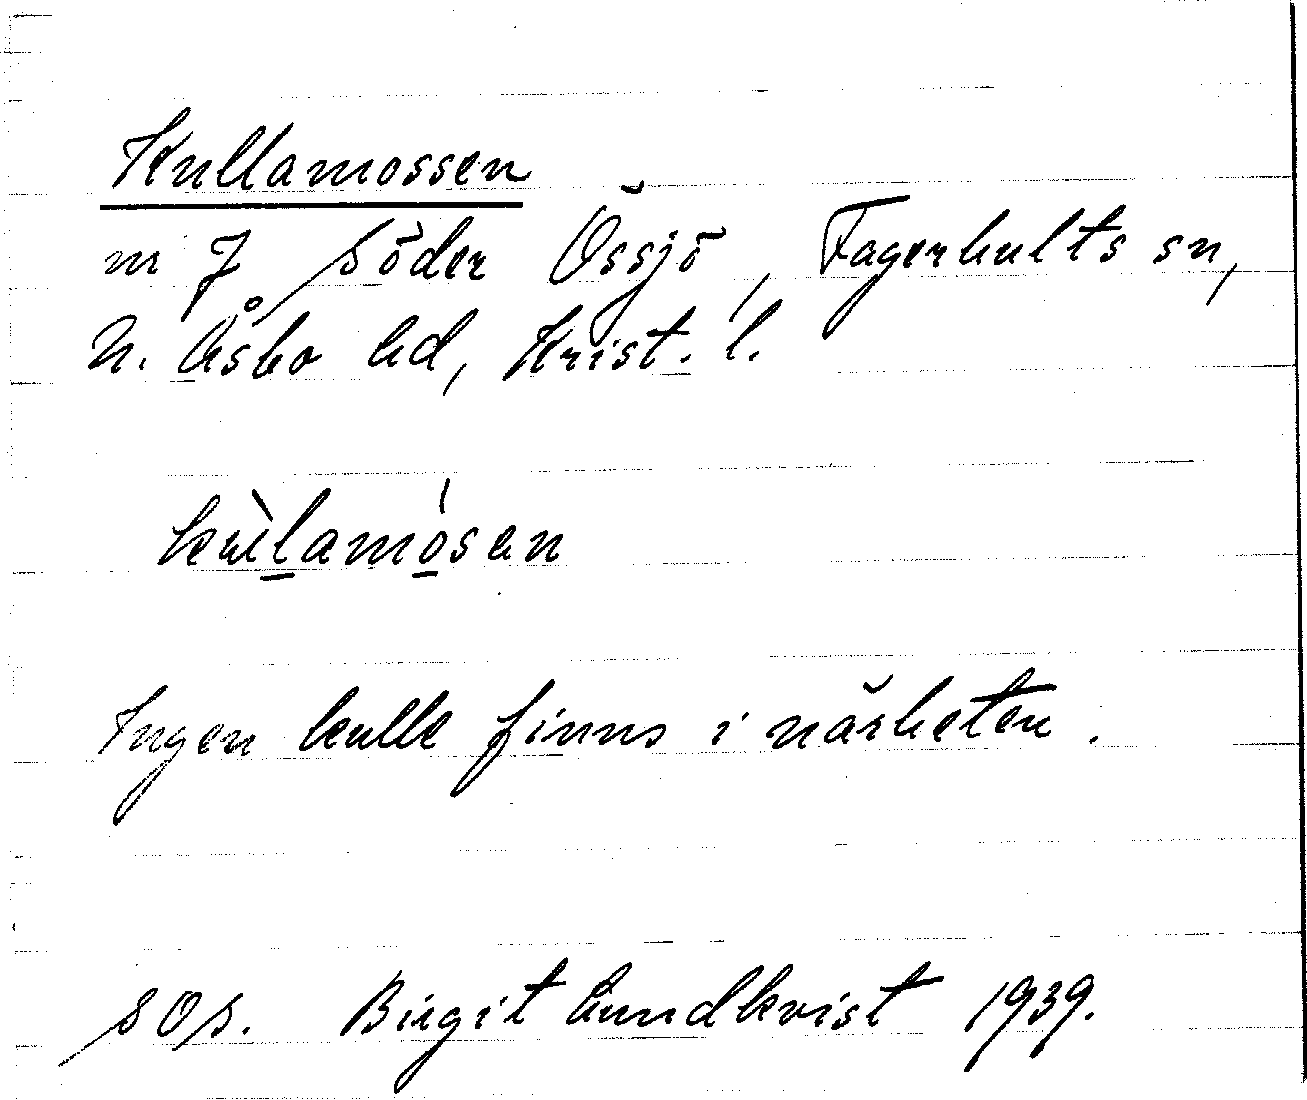 Kullamossen
m J Söder Össjö, Fagerhults sn,
N. Åsbo hd, Krist. l.
kùlamósan
Ingen kulle finns i närheten.
SOS. Birgit Lundkvist 1939.